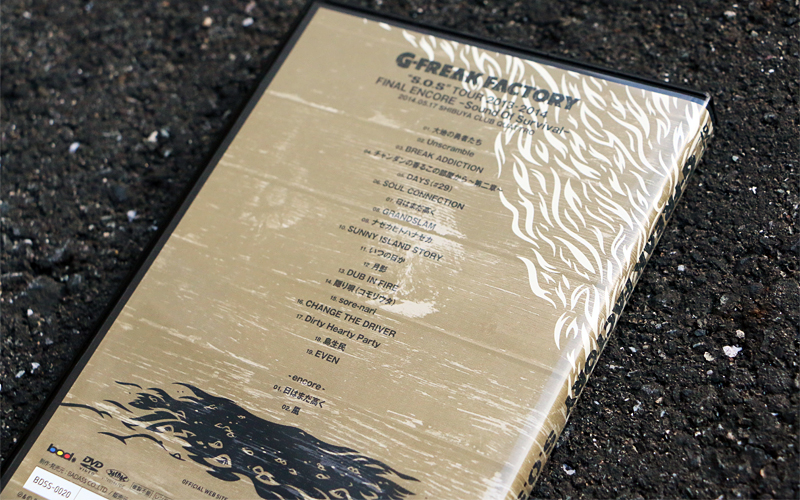 G-FREAK FACTORY
"S.O.S" TOUR 2013-2014
FINAL ENCORE ~Sound Of Survival~
2014.05.17 SHIBUYA CLUB QUATTRO
01. 大地の勇者たち
02. Unscramble
03. BREAK ADDICTION
04. チャンダンの香るこの部屋から~第二章~
05. DAYS (#29)
06. SOUL CONNECTION
07. 日はまだ高く
08. GRANDSLAM
09. ナセカヒトハナセカ
10. SUNNY ISLAND STORY
11. いつの日か
12. 月影
13. DUB IN FIRE
14. 隠り唄(コモリウタ)
15. sore-nari
16. CHANGE THE DRIVER
17. Dirty Hearty Party
18. 島生民
19. EVEN
- encore -
01. 日はまだ高く
02. 風
bad
DVD
OFFICIAL WEB SITE
BDSS-0020